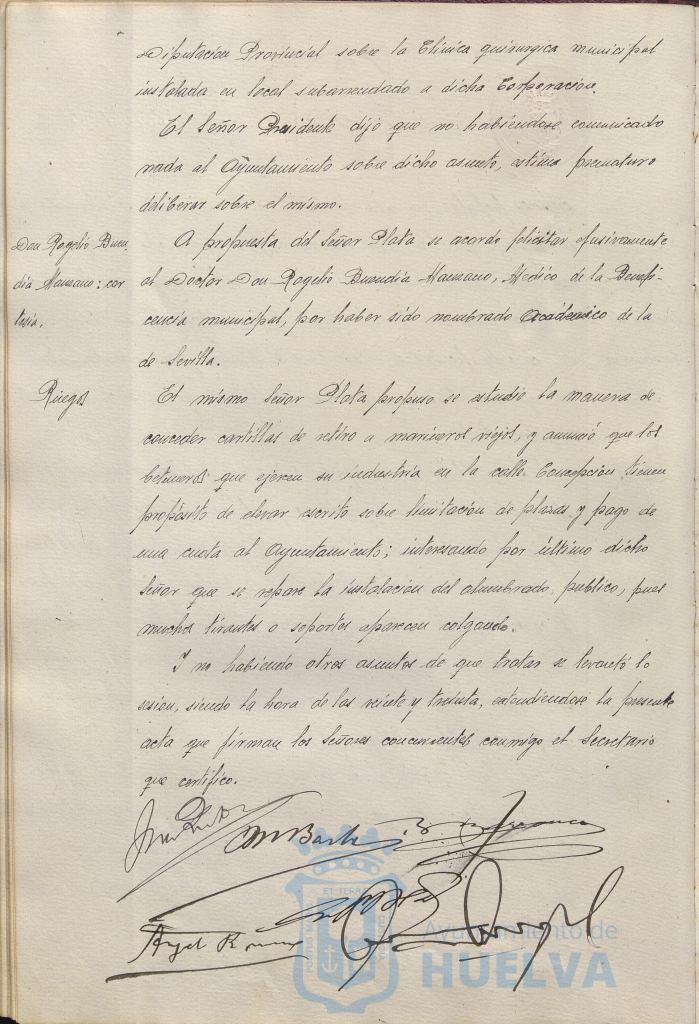 Diputación Provincial sobre la Clínica quirurgica municipal
instalada en local subarrendado a dicha Corporación.
El Señor Presidente dijo que no habiendose comunicado
nada al Ayuntamiento sobre dicho asunto, estima prematuro
deliberar sobre el mismo.
Don Rogelio Buen-
dia Manzano: cor
tesia.
A propuesta del Señor Plata se acordo felicitar efusivamente
al Doctor Don Rogelio Buendia Manzano, Medico de la Benefi-
cencia municipal, por haber sido nombrado Académico de la
de Sevilla.
Ruegos
El mismo Señor Plata propuso se estudie la manera de
conceder cartillas de retiro a marineros viejos, y anunció que los
betuneros que ejercen su industria en la calle Concepcion tienen
propósito de elevar escrito sobre limitacion de plazas y pago de
una cuota al Ayuntamiento; interesando por último dicho
Señor que se repare la instalacion del alumbrado publico, pues
muchos tirantes o soportes aparecen colgando.
Y no habiendo otros asuntos de que tratar se levantó la
sesion, siendo la hora de las veinte y treinta, extendiendose la presente
acta que firman los Señores concurrentes conmigo el Secretario
que certifico.
Angel
ET TERRAE
Ayuntamiento de
HUELVA